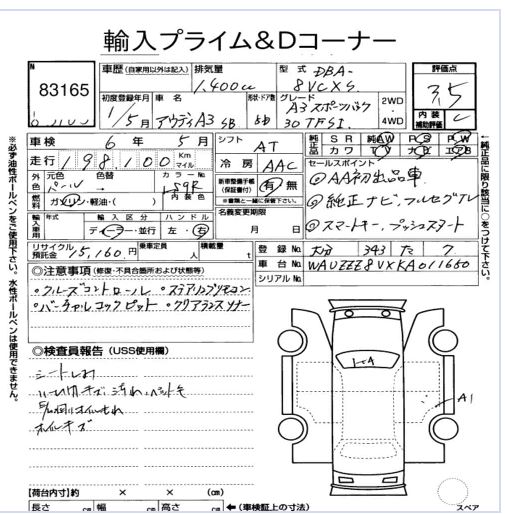 輸入プライム&Dコーナー
No
83165
車歴 (自家用以外は記入) 排気量 1,400cc 型式 DBA-8VCXS
評価点 3.5
初度登録年月 1/5月 車名 アウディA3 SB 形状・ドア数 5D グレード A3スポーツバック 30 TFSI 2WD 4WD
内装補助評価 C
車検 6年 5月 シフト AT 純正品 SR AW PS PW カワ TV エアB
走行 198100 Km マイル 冷房 AAC
セールスポイント
外色 元色 パール 色替 カラーNo LS9R
新車整備手帳 (保証書付) 有・無
※書類と一緒に保管して下さい。
◎AA初出品車
燃料 ガソリン・軽油・( ) 内装色
名義変更期限 月 日
◎純正ナビ、フルセグTV
輸入車用 年式 輸入区分 ディーラー・並行 ハンドル 左・右
◎スマートキー、プッシュスタート
リサイクル預託金 15,160円 乗車定員 人 積載量 t
登録No. 大分 343 た 7
車台No. WAUZZZ8VXKA011650
シリアルNo.
◎注意事項 (修復・不具合箇所および状態等)
・クルーズコントロール ・ステアリングリモコン
・バーチャルコックピット ・クリアランスソナー
◎検査員報告 (USS使用欄)
シートしわ
ハンドルキズ
オイルもれ
ホイルキズ
A1
【荷台内寸】約 × × (cm)
長さ cm 幅 cm 高さ cm ←(車検証上の寸法)
スペア
※必ず油性ボールペンをご使用下さい。水性ボールペンは使用できません。
←純正品に限り該当に○をつけて下さい。